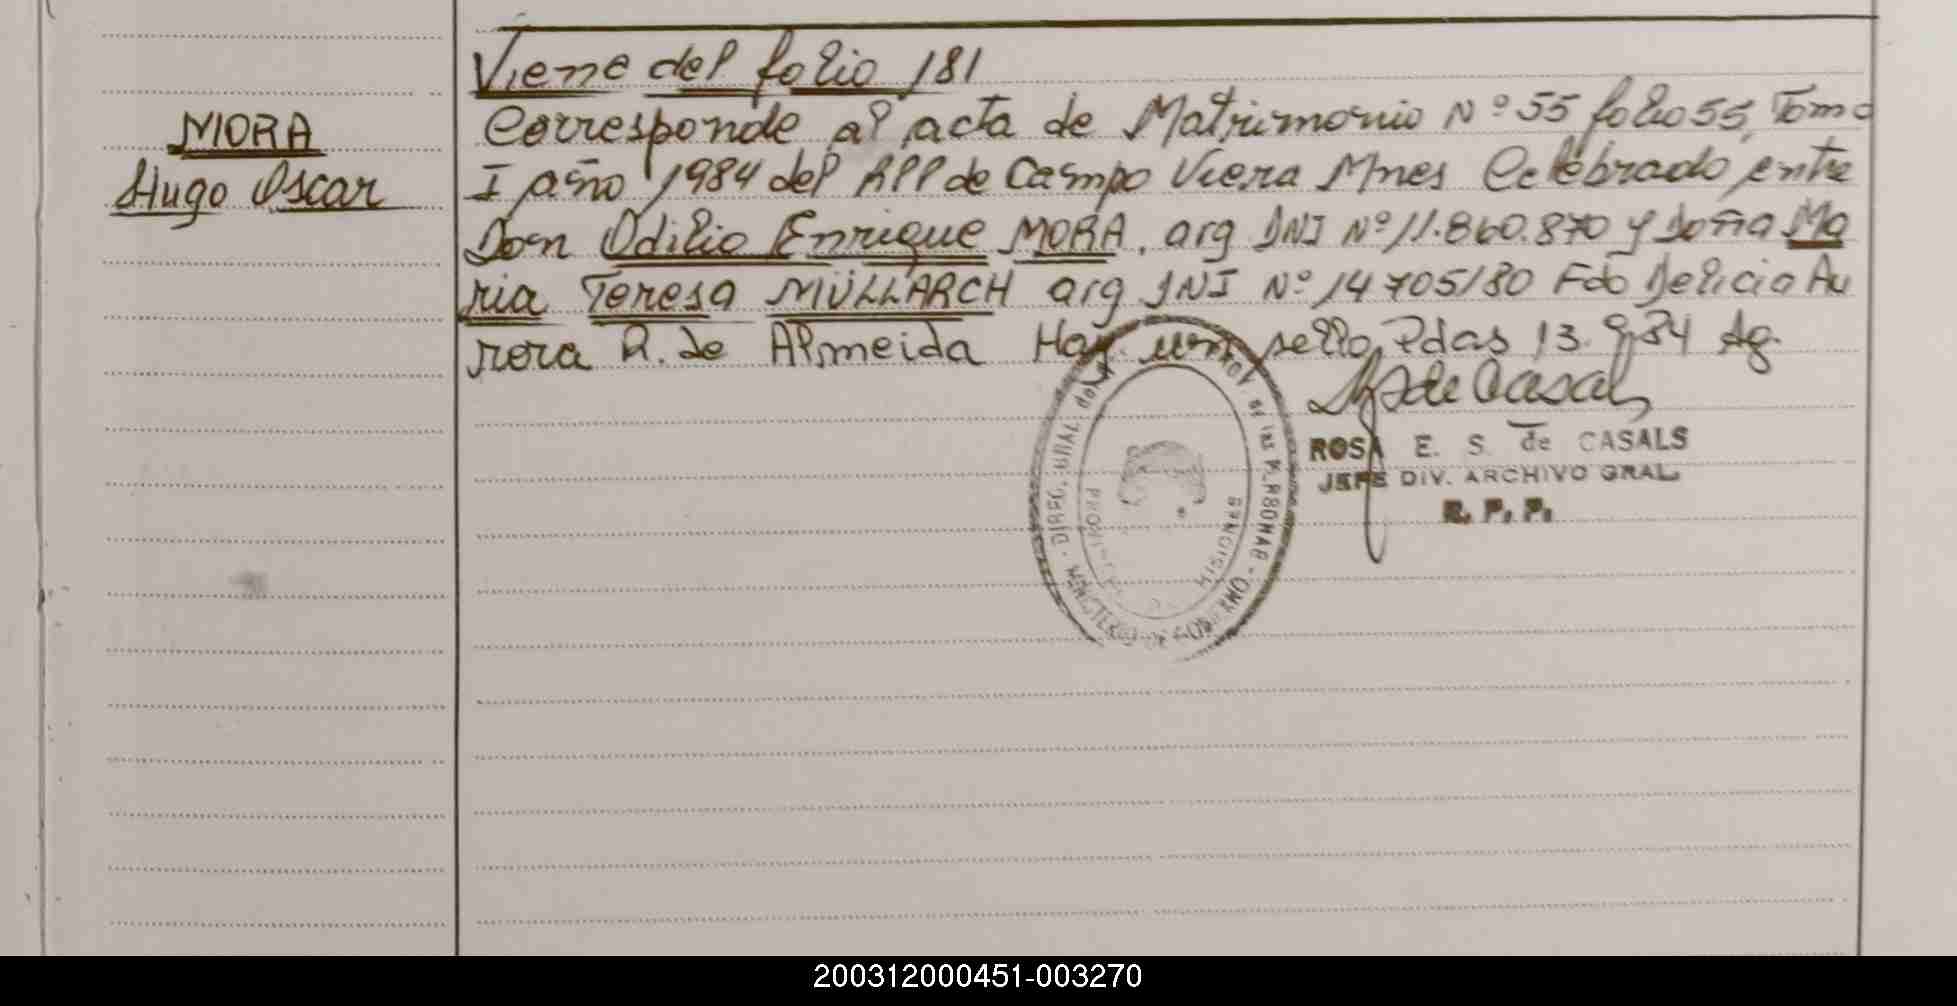 Viene del folio 181
MORA
Hugo Oscar
Corresponde al acta de Matrimonio Nº 55 folio 55, Tomo
I año 1984 del RPP de Campo Viera Mnes Celebrado entre
Don Odilio Enrique MORA, arg DNI Nº 11.860.870 y doña Ma
ria Teresa MÜLLARCH arg DNI Nº 14705180 Fdo Delicia Au
rora R. de Almeida Hay un sello Pdas 13.9.84 Ag.
ROSA E. S. de CASALS
JEFE DIV. ARCHIVO GRAL.
R. P. P.
DIREC. GRAL. de las PERSONAS - MINISTERIO DE
MISIONES
200312000451-003270